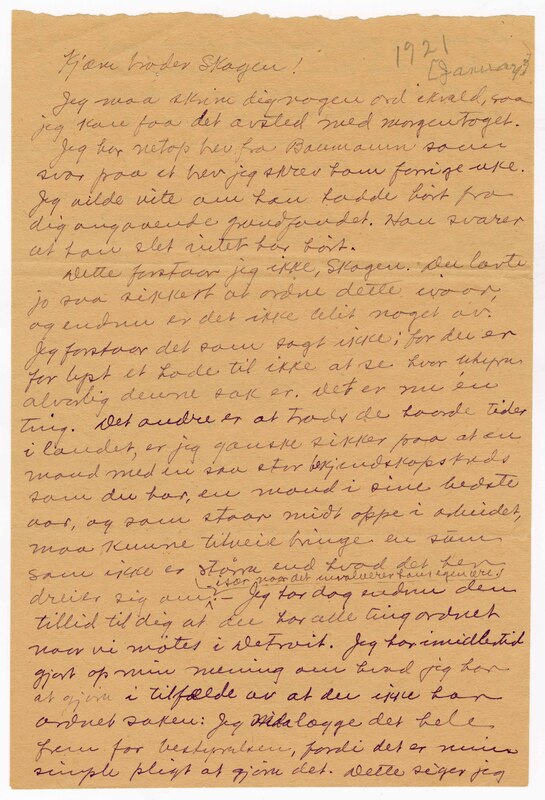 1921
[January?]
Kjære broder Skogen!
Jeg maa skrive dig nogen ord ikvæld, saa
jeg kan faa det avsted med morgentoget.
Jeg har netop brev fra Baumann som
svar paa et brev jeg skrev ham forrige uke.
Jeg vilde vite om han hadde hørt fra
dig angaaende grundfondet. Han svarer
at han slet intet har hørt.
Dette forstaar jeg ikke, Skogen. Du lovte
jo saa sikkert at ordne dette ivaar,
og endnu er det ikke blit noget av.
Jeg forstaar det som sagt ikke; for du er
for lyst et hode til ikke at se hvor uhyre
alvorlig denne sak er. Det er nu én
ting. Det andre er at trods de haarde tider
i landet, er jeg ganske sikker paa at en
mand med en saa stor bekjendskapskreds
som du har, en mand i sine bedste
aar, og som staar midt oppe i arbeidet,
maa kunne tilveiebringe en sum
som ikke er større end hvad det her
(især naar det involverer hans egen ære)
dreier sig om; – Jeg har dog endnu den
tillid til dig at du har alle ting ordnet
naar vi møtes i Detroit. Jeg har imidlertid
gjort op min mening om hvad jeg har
at gjøre i tilfælde av at du ikke har
ordnet saken: Jeg lægge det hele
frem for bestyrelsen, fordi det er min
simple pligt at gjøre det. Dette siger jeg